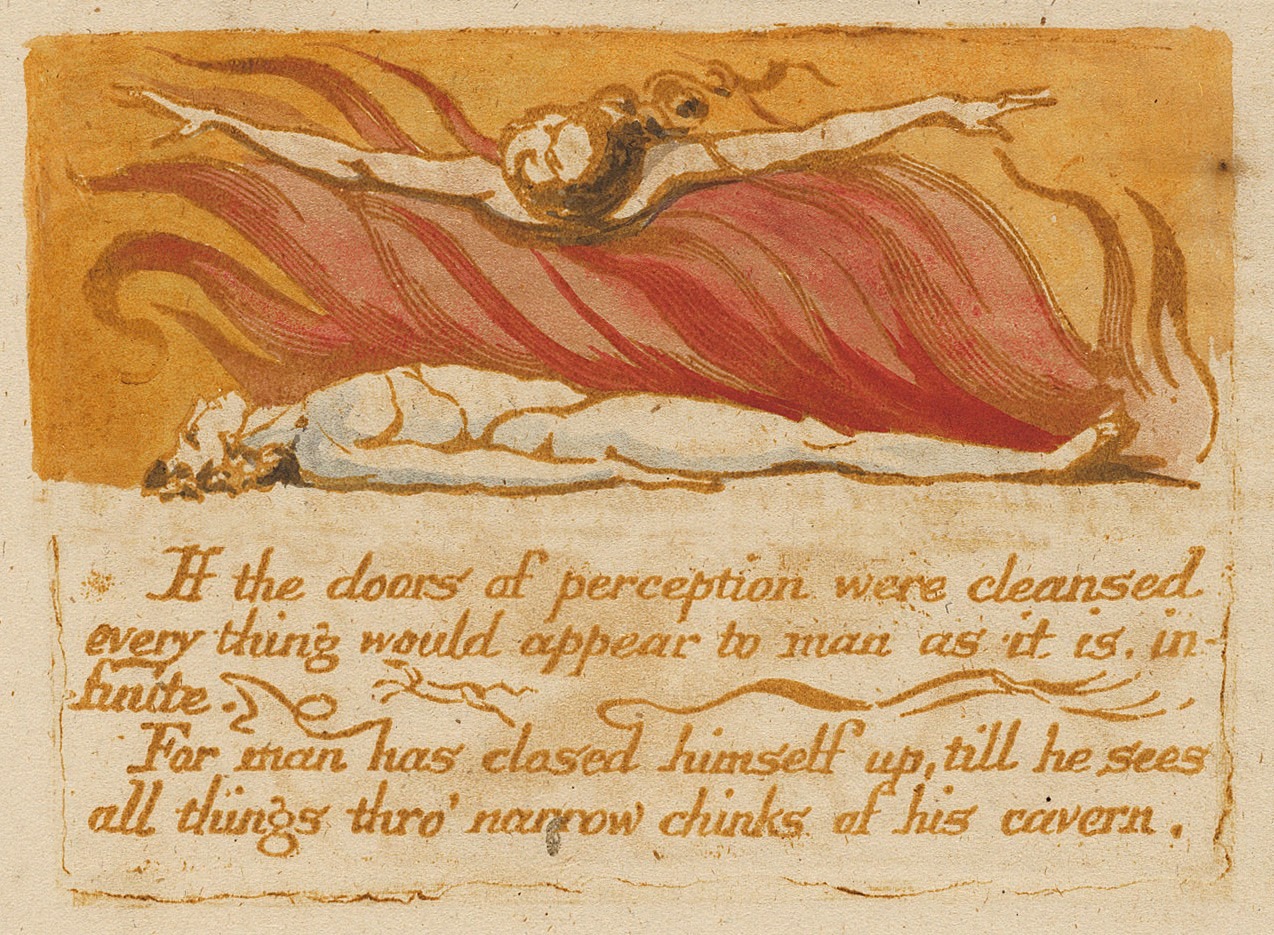 If the doors of perception were cleansed
every thing would appear to man as it is, in-
finite.
For man has closed himself up, till he sees
all things thro' narrow chinks of his cavern.